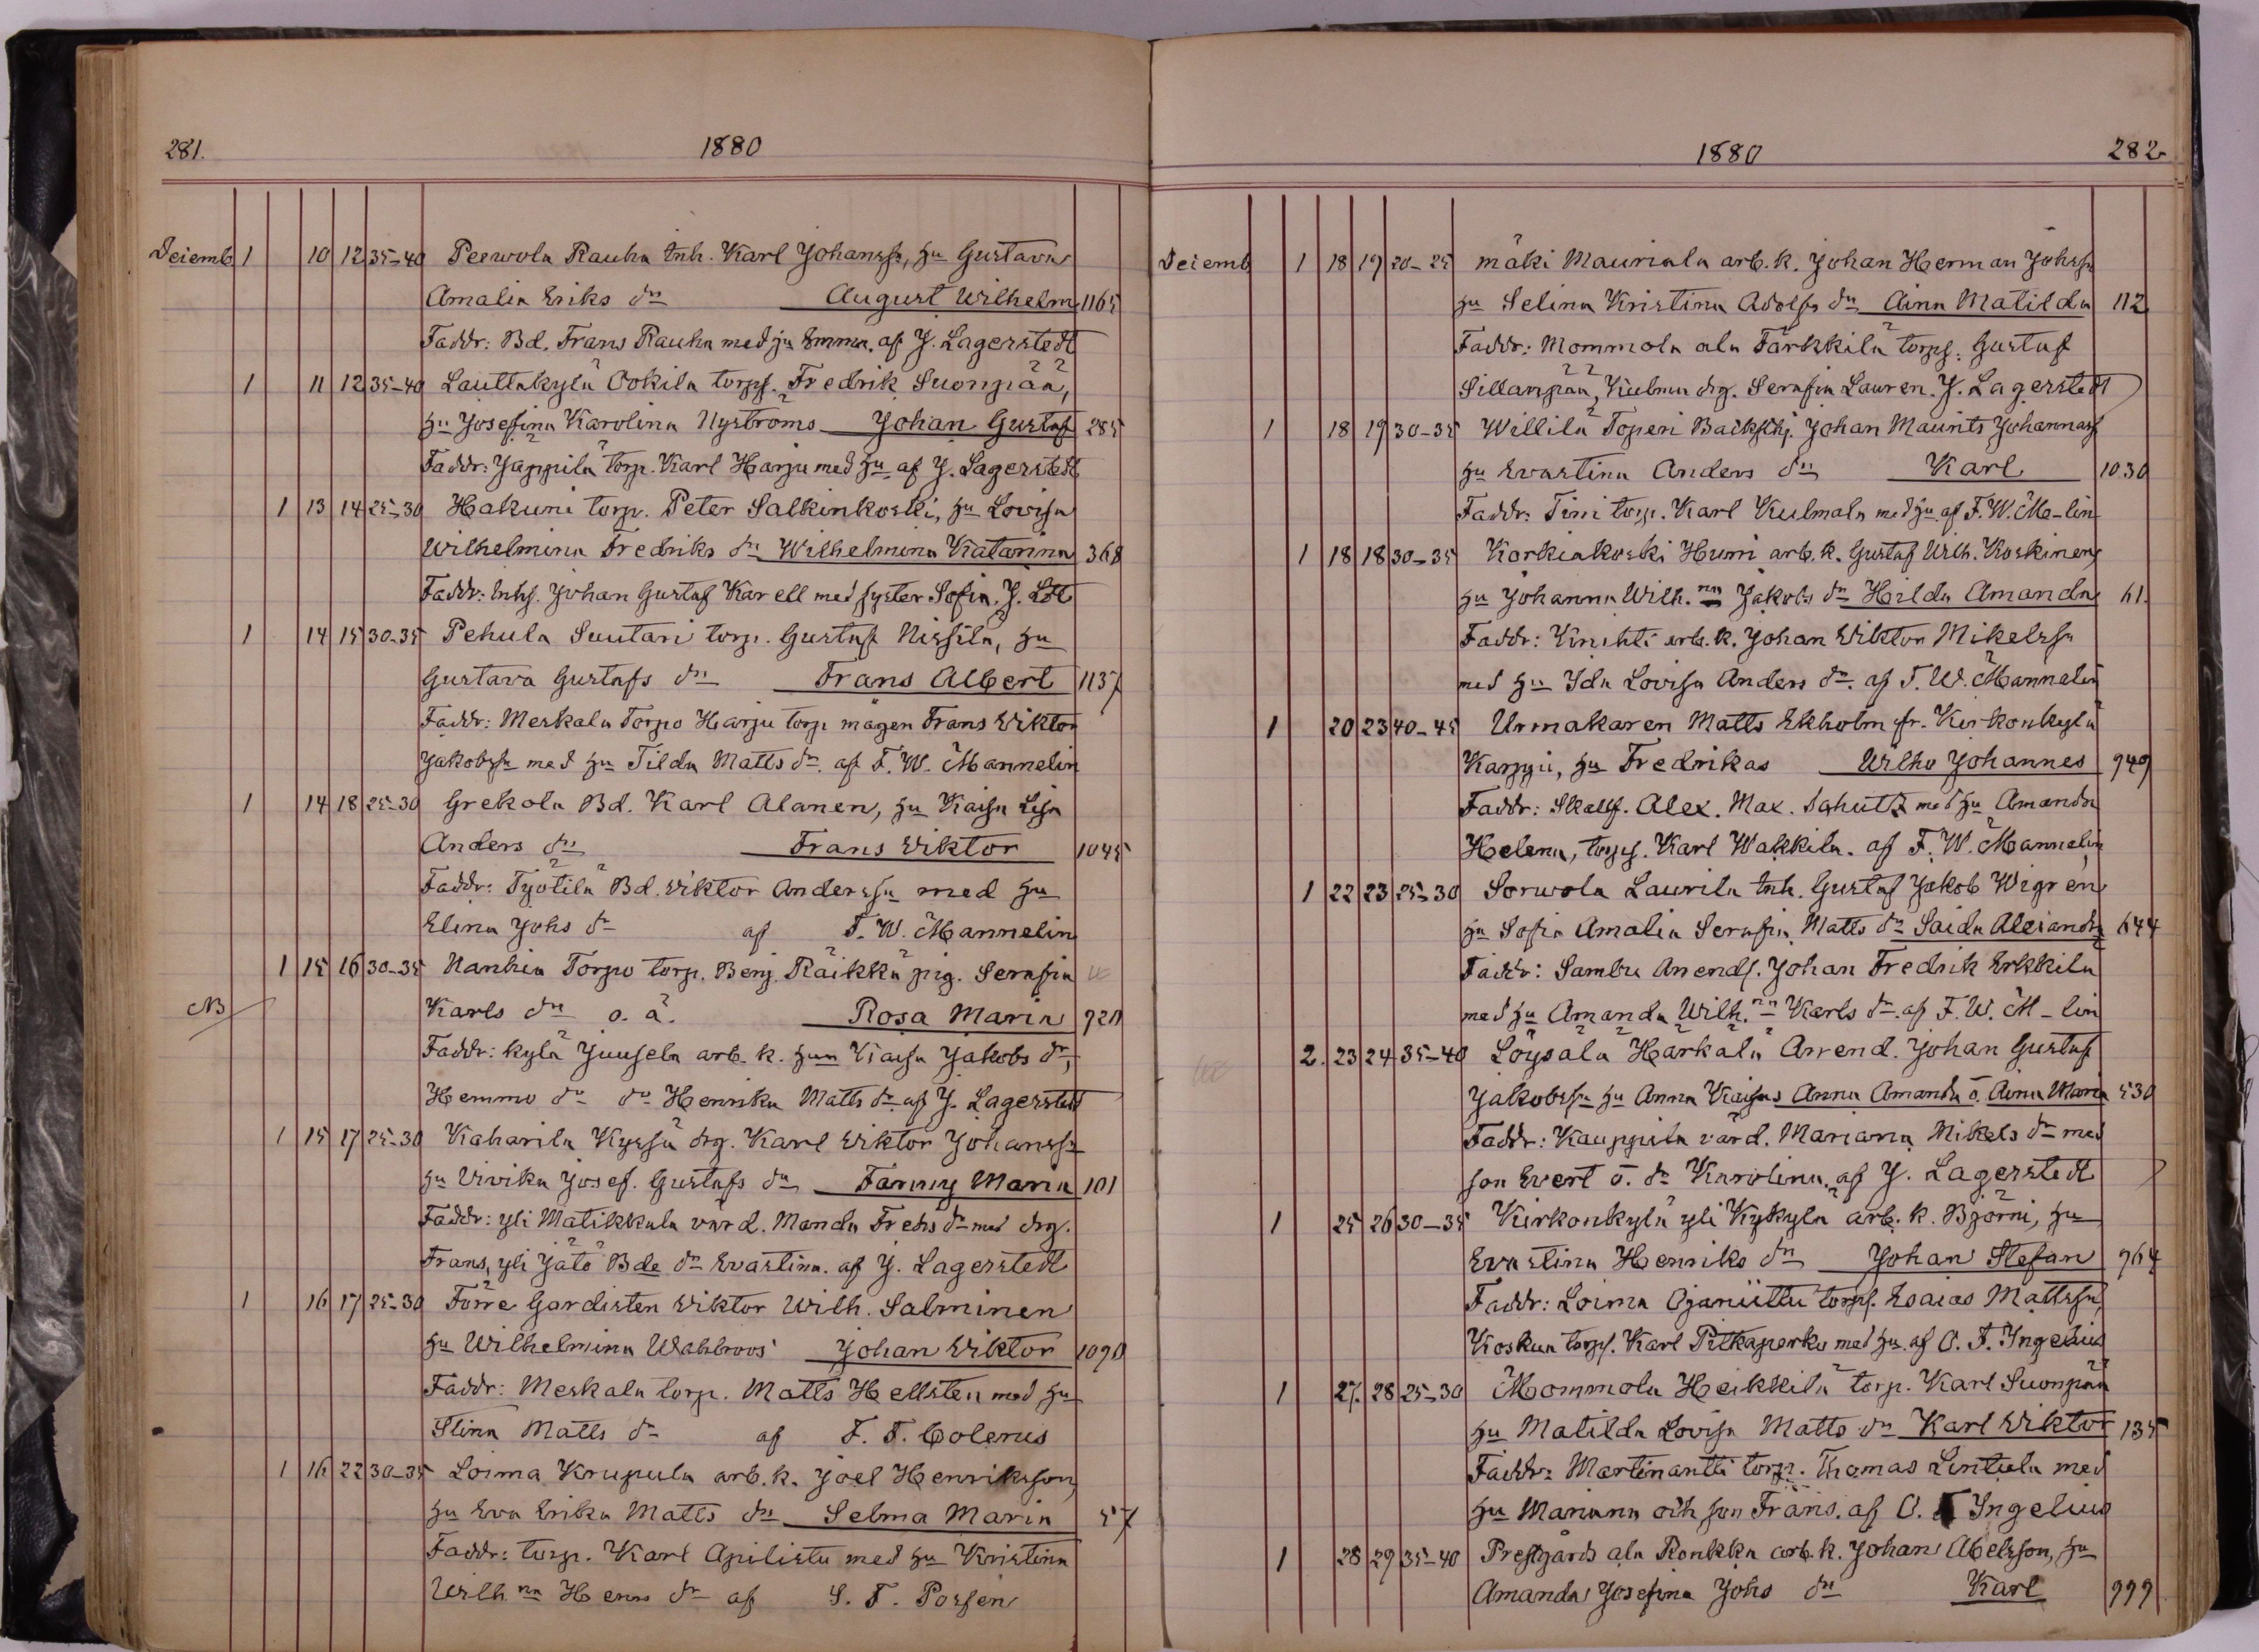 281. 1880
Decemb 1 10 12 35-40 Peewola Rauha Inh. Karl Johanss, hu Gustava
Amalia Eriks dr August Wilhelm 1165
Faddr: Bd. Frans Rauha med hu Emma. af J. Lagerstedt
1 11 12 35-40 Lauttakylä Ookila torp. Fredrik Suonpää,
hu Josefina Karolina Nyströms Johan Gustaf 285
Faddr: Jappilä torp. Karl Harju med hu af J. Lagerstedt
1 13 14 25-30 Hakuni torp. Peter Salkinkoski, hu Lovisa
Wilhelmina Fredriks dr Wilhelmina Katarina 368
Faddr: Inhs. Johan Gustaf Karell med syster Sofia. J. Ldt
1 14 15 30-35 Pehula Suutari torp. Gustaf Nissila, hu
Gustava Gustafs dr Frans Albert 1137
Faddr: Meskala Torpo Harju torp mågen Frans Wiktor
Jakobss med hu Tilda Matts dr. af F. W. Mannelin
1 14 18 25-30 Grekola Bd. Karl Alanen, hu Kaisa Lisa
Anders dr Frans Wiktor 1045
Faddr: Työtilä Bd. Wiktor Anderssn med hu
Elina Johs dr af F. W. Mannelin
1 15 16 30-35 Nanhia Torpo torp. Benj. Räikkä pig. Serafia
NB Karls dr o. ä. Rosa Maria 920
Faddr: kylä Juusela arb. k. hun Kaisa Jakobs dr,
Hemmo dr dr Henrika Matts dr af J. Lagerstedt
1 15 17 25-30 Kaharila Kyssä drg. Karl Wiktor Johanss
hu Vivika Josef. Gustafs dr Fanny Maria 101
Faddr: yli Matikkala värd. Manda Freds dr med drg.
Frans, yli Jätö Bde dr Evastina. af J. Lagerstedt
1 16 17 25-30 Förre Gardisten Wiktor Wilh. Salminen
hu Wilhelmina Wahlroos Johan Wiktor 1090
Faddr: Meskala torp. Matts Hellsten med hu
Stina Matts dr af F. F. Colerus
1 16 22 30-35 Loima Krupula arb. k. Joel Henriksson,
hu Eva Erika Matts dr Selma Maria 57
Faddr: torp. Karl Apilistu med hu Kristina
Wilh na Henr dr af S. F. Porsen
1880 282
Decemb 1 18 19 20-25 mäki Mauriala arb. k. Johan Herman Johss
hu Selina Kristina Adolfs dr Aina Matilda 112
Faddr: Mommola ala Tärkkilä torp. Gustaf
Sillanpää, Kulmu drg. Serafia Lauren. J. Lagerstedt
1 18 19 30-35 Willilä Toperi Johan Maurits Johannas
hu Evastina Anders dr Karl 1030
Faddr: Tini torp. Karl Kulmala med hu af F. W. M-lin
1 18 18 30-35 Korkiakoski Humi arb. k. Gustaf Wilh. Koskinen,
hu Johanna Wilh. na Jakobs dr Hilda Amanda 61.
Faddr: Knihti arb. k. Johan Wiktor Mikelss
med hu Ida Lovisa Anders dr. af F. W. Mannelin
1 20 23 40-45 Urmakaren Matts Ekholm fr. Kirkonkylä
Karpu, hu Fredrikas Wilho Johannes 949
Faddr: Skallf. Alex. Max. Schultz med hu Amanda
Helena, torp. Karl Wakkila. af F. W. Mannelin
1 22 23 25-30 Sorwola Laurila Inh. Gustaf Jakob Wigren
hu Sofia Amalia Serafia Matts dr Saida Alexandra 644
Faddr: Sambu Arends. Johan Fredrik Erkkila
med hu Amanda Wilh. na Karls dr. af F. W. M-lin
2. 23 24 35-40 Löysälä Härkälä Arrend. Johan Gustaf
Jakobss hu Anna Kaisas Anna Amanda o. Aina Maria 530
Faddr: Kauppila värd. Mariana Mikels dr med
son Evert o. dr Karolina. af J. Lagerstedt
1 25 26 30-35 Kirkonkylä yli Kykylä arb. k. Björni, hu
Evastina Henriks dr Johan Stefan 964
Faddr: Loima Ojaniittu torp. Esaias Mattssn,
Koskua torp. Karl Pitkäperko med hu af O. F. Ingelius
1 27. 28 25-30 Mommola Heikkilä torp. Karl Suonpää
hu Matilda Lovisa Matts dr Karl Wiktor 135
Faddr: Martinantti torp. Thomas Lintula med
hu Mariana och son Frans. af O. F Ingelius
1 28 29 35-40 Prestgårds ala Ronkka arb. k. Johan Abelsson, hu
Amanda Josefina Johs dr Karl 999